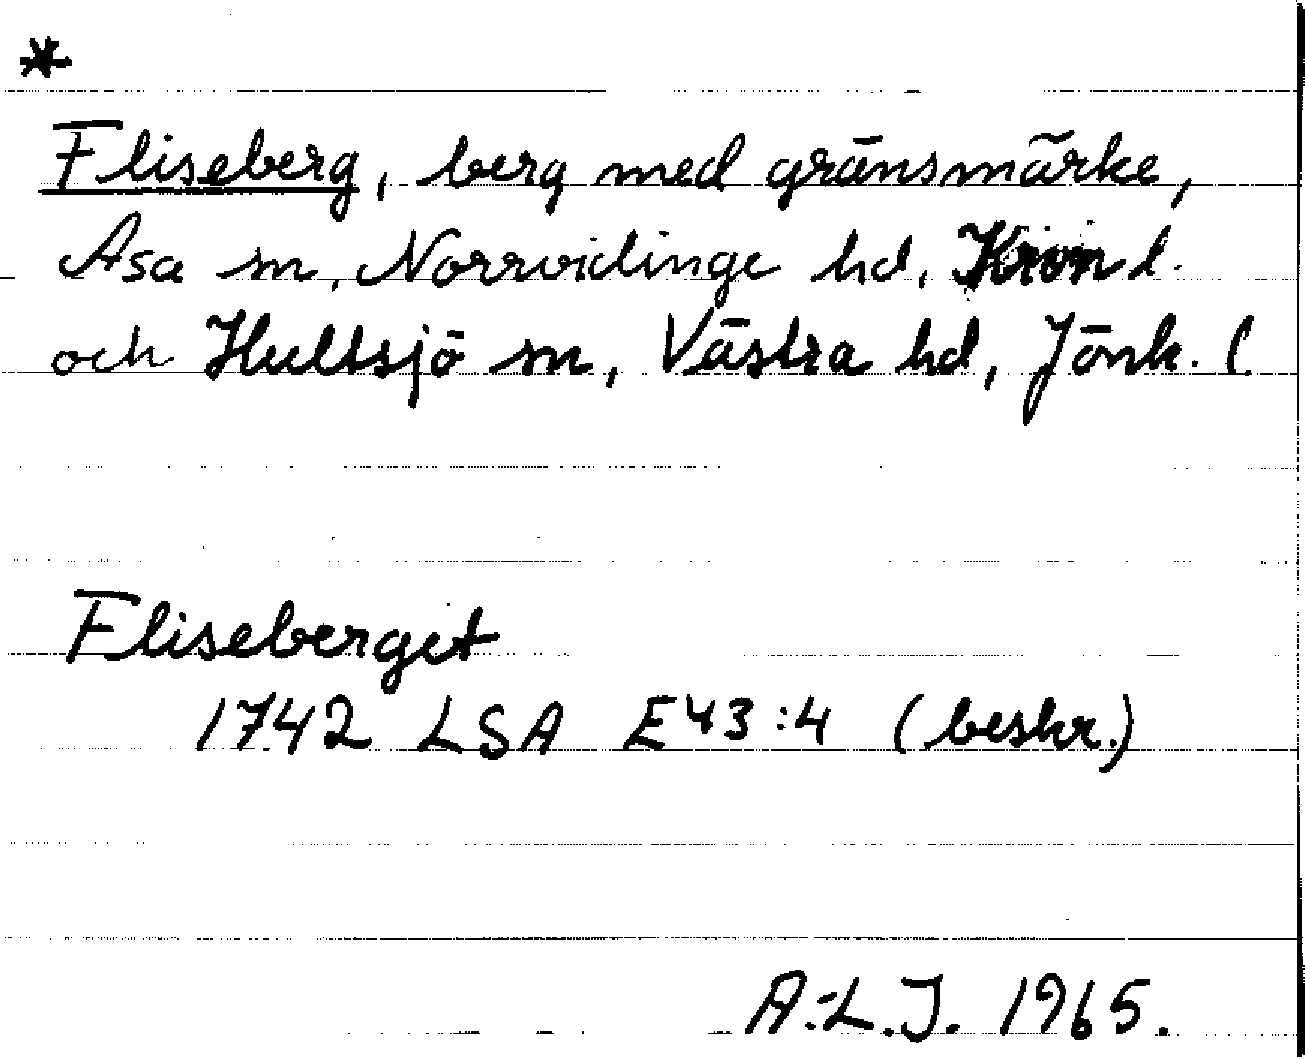 *
Fliseberg, berg med gränsmärke,
Asa sn, Norrvidinge hd, Kron l.
och Hultsjö sn, Västra hd, Jönk. l.
Fliseberget
1742 LSA E43:4 (beskr.)
A.-L.J. 1965.